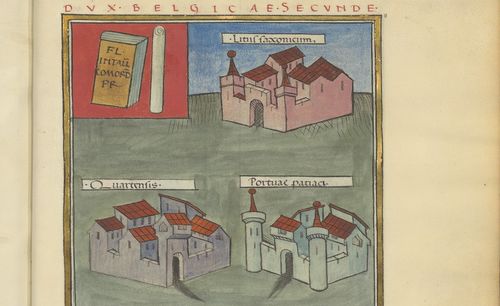 DVX·BELGICAE·SECVNDE·
FL·
INTALL
COMORD
PR·
·Litus saxonicum,
·Quartensis·
Portuae patiaci·